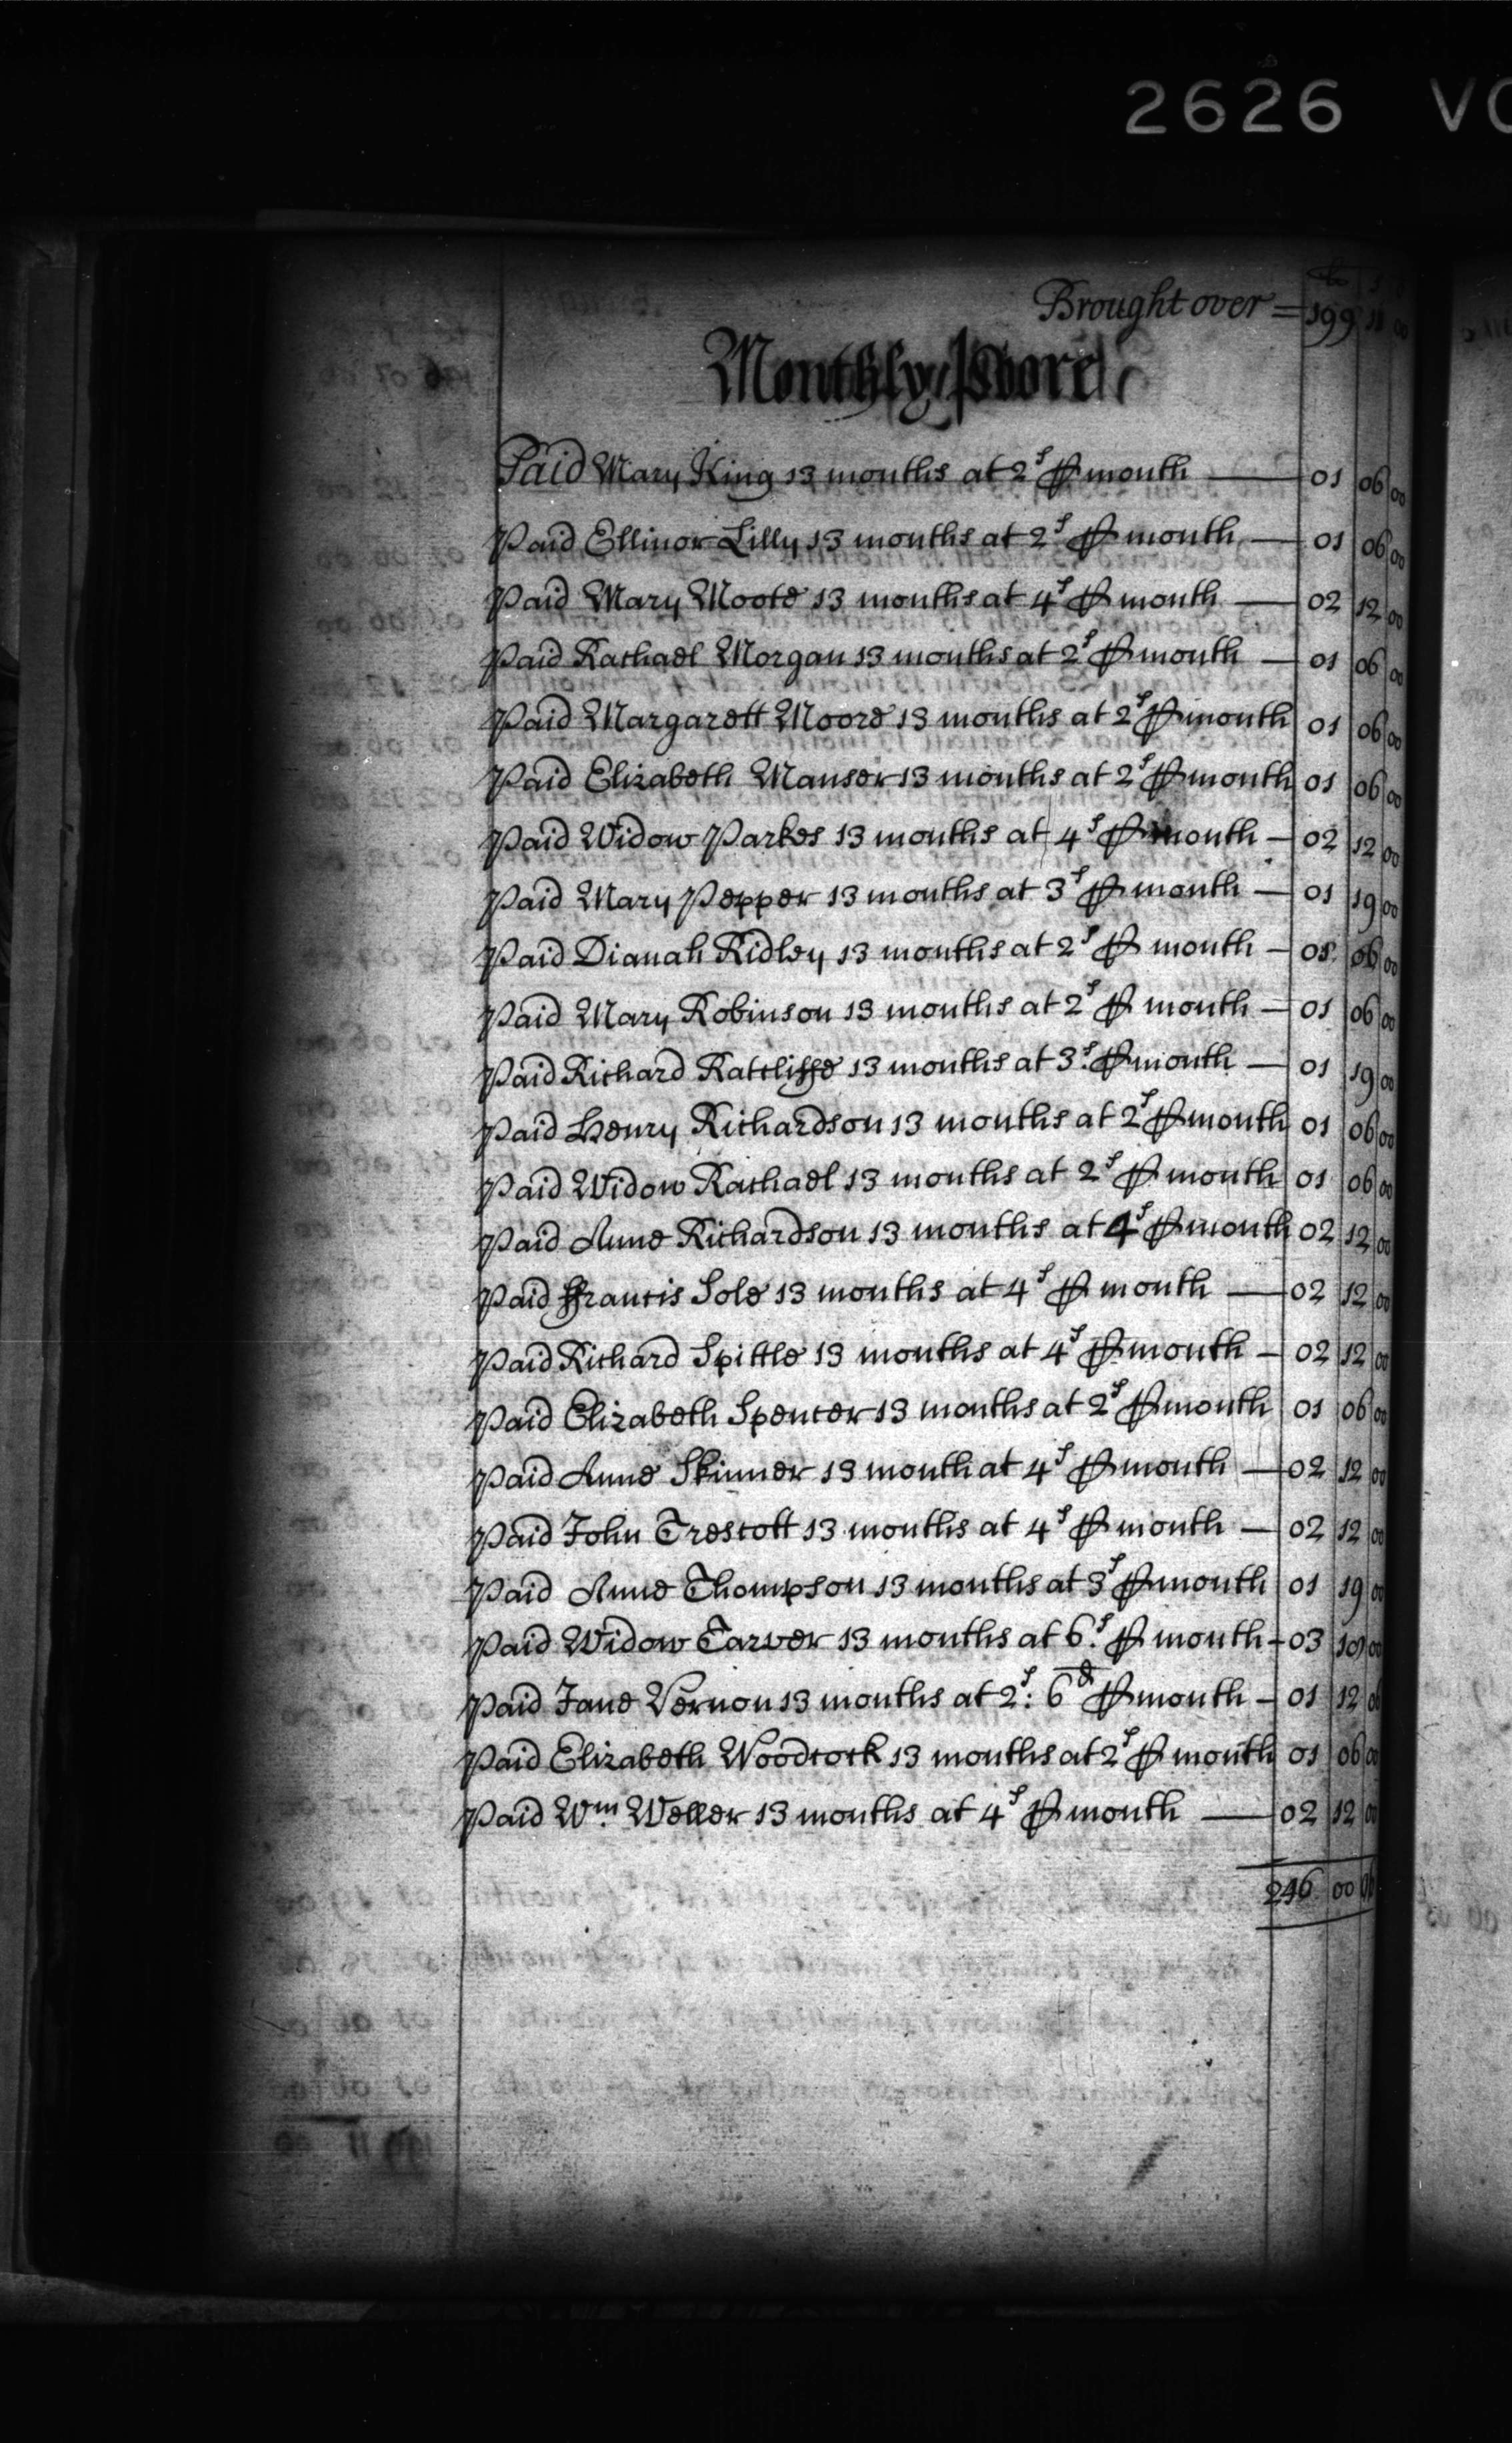 2626 VO
li s d
Brought over = 199 11 00
Monthly Poore
Paid Mary King 13 months at 2s ℔ month — 01 06 00
Paid Ellinor Lilly 13 months at 2s ℔ month — 01 06 00
Paid Mary Moote 13 months at 4s ℔ month — 02 12 00
Paid Rachael Morgan 13 months at 2s ℔ month — 01 06 00
Paid Margarett Moore 13 months at 2s ℔ month 01 06 00
Paid Elizabeth Manser 13 months at 2s ℔ month 01 06 00
Paid Widow Parkes 13 months at 4s ℔ month — 02 12 00
Paid Mary Pepper 13 months at 3s ℔ month — 01 19 00
Paid Dianah Ridley 13 months at 2s ℔ month — 01 06 00
Paid Mary Robinson 13 months at 2s ℔ month — 01 06 00
Paid Richard Ratcliffe 13 months at 3s. ℔ month — 01 19 00
Paid Henry Richardson 13 months at 2s ℔ month 01 06 00
Paid Widow Rachael 13 months at 2s ℔ month 01 06 00
Paid Anne Richardson 13 months at 4s ℔ month 02 12 00
Paid ffrancis Sole 13 months at 4s ℔ month — 02 12 00
Paid Richard Spittle 13 months at 4s ℔ month — 02 12 00
Paid Elizabeth Spencer 13 months at 2s ℔ month 01 06 00
Paid Anne Skinner 13 month at 4s ℔ month — 02 12 00
Paid John Trescott 13 months at 4s ℔ month — 02 12 00
Paid Anne Thompson 13 months at 3s ℔ month 01 19 00
Paid Widow Tarver 13 months at 6s. ℔ month — 03 18 00
Paid Jane Vernon 13 months at 2s: 6d ℔ month — 01 12 06
Paid Elizabeth Woodcock 13 months at 2s ℔ month 01 06 00
Paid Wm. Weller 13 months at 4s ℔ month — 02 12 00
246 00 06